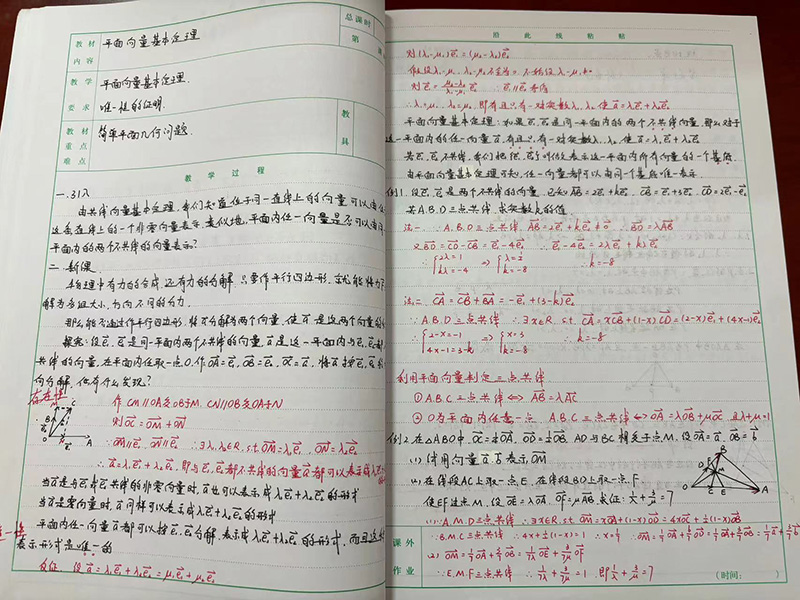 总课时
第
教材内容
平面向量基本定理
教学要求
平面向量基本定理.
唯一性的证明.
教材重点难点
简单平面几何问题.
教具
教学过程
一.引入
由共线向量基本定理,我们知道位于同一直线上的向量可以由位于
这条直线上的一个非零向量表示.类似地,平面内任一向量是否可以由同一
平面内的两个不共线的向量表示?
二.新课
我们能不能通过作平行四边形,将
探究:设e₁,e₂是同一平面内两个不共线的向量,a是这一平面内与e₁,e₂都不
共线的向量,在平面内任取一点O.作OA=e₁,OB=e₂,OC=a,将a按e₁,e₂的
向分解,你有什么发现?
存在性
作CM∥OA交OB于M.CN∥OB交OA于N
则OC=OM+ON
∴a=λ₁e₁+λ₂e₂,即与e₁,e₂都不共线的向量a都可以表示成λ₁e₁
当a是与e₁或e₂共线的非零向量时,a也可以表示成λ₁e₁+λ₂e₂的形式
当a是零向量时,a同样可以表示成λ₁e₁+λ₂e₂的形式
平面内任一向量a都可以按e₁,e₂分解,表示成λ₁e₁+λ₂e₂的形式,而且这种
表示形式是唯一的
反证.设a=λ₁e₁+λ₂e₂=μ₁e₁+μ₂e₂
沿此线粘贴
则(λ₁-μ₁)e₁=(μ₂-λ₂)e₂
∴λ₁=μ₁,λ₂=μ₂,即有且只有一对实数λ₁,λ₂使a=λ₁e₁+λ₂e₂
平面向量基本定理:如果e₁,e₂是同一平面内的两个不共线向量,那么对于
这一平面内的任一向量a,有且只有一对实数λ₁,λ₂使a=λ₁e₁+λ₂e₂
若e₁,e₂不共线,我们把{e₁,e₂}叫做表示这一平面内所有向量的一个基底.
由平面向量基本定理可知,任一向量都可以由同一个基底唯一表示
例1.设e₁,e₂是两个不共线的向量,已知AB=2e₁+ke₂,CB=e₁+3e₂,CD=2e₁-e₂
若A.B.D三点共线,求实数k的值.
法一.∵A.B.D三点共线,AB=2e₁+ke₂≠0 ∴BD=λAB
又BD=CD-CB=e₁-4e₂ ∴e₁-4e₂=2λe₁+kλe₂
∴{2λ=1 kλ=-4 ⇒{λ=½ k=-8 ∴k=-8
法二.CA=CB+BA=-e₁+(3-k)e₂
∵A.B.D三点共线 ∴∃x∈R.s.t.CA=xCB+(1-x)CD=(2-x)e₁+(4x-1)e₂
∴{2-x=-1 4x-1=3-k ⇒{x=3 k=-8 ∴k=-8
利用平面向量判定三点共线
①A.B.C三点共线⇔AB=λAC
②O为平面内任意一点.A.B.C三点共线⇔OA=λOB+μOC且λ+μ=1
例2.在△ABO中,OC=¼OA,OD=½OB,AD与BC相交于点M,设OA=a,OB=b
(1)试用向量a.b表示OM
(2)在线段AC上取一点E,在线段BD上取一点F
使EF过点M,设OE=λOA,OF=μOB,求证:1/λ+3/μ=7
(1)∵A.M.D三点共线 ∴∃x∈R.s.t OM=xOA+(1-x)OD=4xOC+½(1-x)OB
∵B.M.C三点共线 ∴4x+½(1-x)=1 ∴x=1/7 ∴OM=1/7OA+6/7OD=1/7OA+3/7OB=1/7a+3/7b
(2)OM=1/7OA+3/7OB=1/7λOE+3/7μOF
∵E.M.F三点共线 ∴1/7λ+3/7μ=1 即1/λ+3/μ=7
课外作业
(时间: )